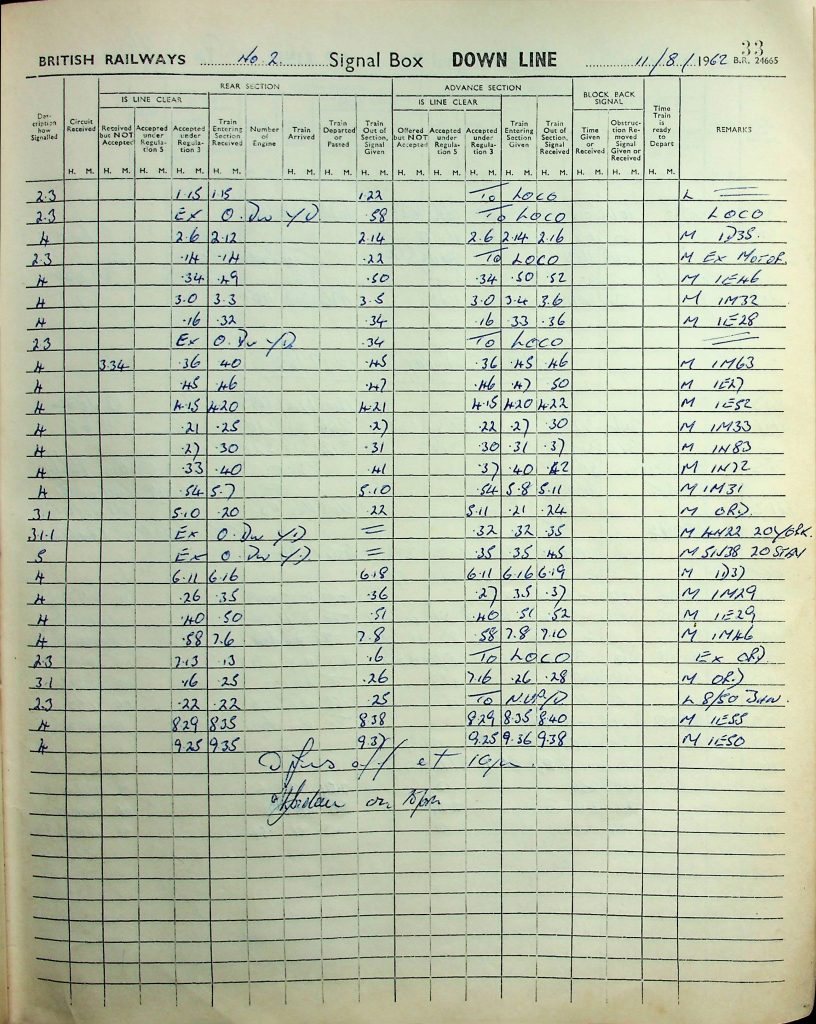 33
BRITISH RAILWAYS No 2. Signal Box DOWN LINE 11/8/1962 B.R. 24665
REAR SECTION ADVANCE SECTION BLOCK BACK SIGNAL
IS LINE CLEAR IS LINE CLEAR
Description how Signalled Circuit Received Received but NOT Accepted Accepted under Regulation 5 Accepted under Regulation 3 Train Entering Section Received Number of Engine Train Arrived Train Departed or Passed Train Out of Section, Signal Given Offered but NOT Accepted Accepted under Regulation 5 Accepted under Regulation 3 Train Entering Section Given Train Out of Section, Signal Received Time Given or Received Obstruction Removed Signal Given or Received Time Train is ready to Depart REMARKS
H. M. H. M. H. M. H. M. H. M. H. M. H. M. H. M. H. M. H. M. H. M. H. M. H. M. H. M. H. M. H. M.
2.3 1.15 1.15 1.22 To LOCO L
2.3 Ex O. Dw YD .58 To LOCO LOCO
4 2.6 2.12 2.14 2.6 2.14 2.16 M 1D35.
2.3 .14 .14 .22 To LOCO M Ex MOTOR.
4 .34 .49 .50 .34 .50 .52 M 1E46
4 3.0 3.3 3.5 3.0 3.4 3.6 M 1M32
4 .16 .32 .34 .16 .33 .36 M 1E28
2.3 Ex O. Dw YD .34 To LOCO
4 3.34 .36 40 .45 .36 .45 .46 M 1M63
4 .45 .46 .47 .46 .47 50 M 1E27
4 4.15 4.20 4.21 4.15 4.20 4.22 M 1E52
4 .21 .25 .27 .22 .27 .30 M 1M33
4 .27 .30 .31 .30 .31 .37 M 1N83
4 .33 .40 .41 .37 .40 .42 M 1N72
4 .54 5.7 5.10 .54 5.8 5.11 M 1M31
3.1 5.10 .20 .22 5.11 .21 .24 M ORD.
3.1.1 Ex O. Dw YD = .32 .32 .35 M 4N22 20 YORK.
5 Ex O. Dw YD = .35 .35 .45 M 5N38 20 STAN
4 6.11 6.16 6.18 6.11 6.16 6.19 M 1D37
4 .26 .35 .36 .27 35 .37 M 1M29
4 .40 .50 .51 .40 .51 .52 M 1E29
4 .58 7.6 7.8 .58 7.8 7.10 M 1M46
2.3 7.13 .13 .16 To LOCO Ex ORD
3.1 .16 .25 .26 7.16 .26 .28 M ORD
2.3 .22 .22 .25 To N.UP/D. L 8/50
4 8.29 8.35 8.38 8.29 8.35 8.40 M 1E55
4 9.25 9.35 9.37 9.25 9.36 9.38 M 1E50
off at 10pm.
on 10pm